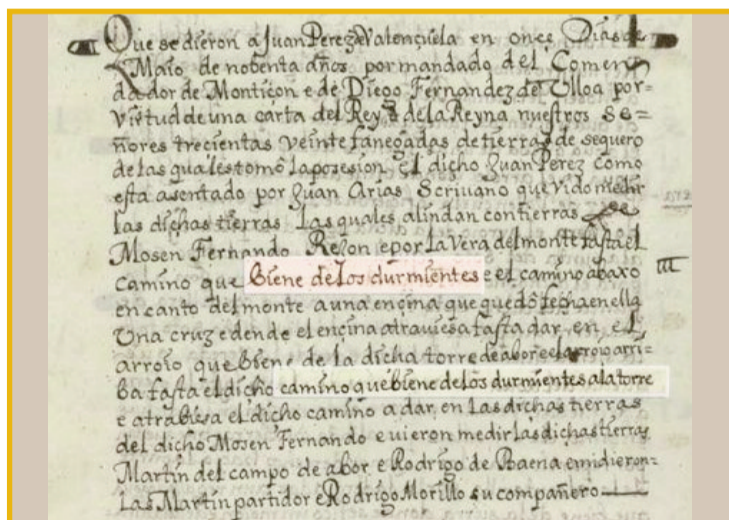 Que se dieron a Juan Perez de Valençuela en once Dias de
Maio de nobenta años por mandado del Comen
dador de Monticon e de Diego Fernandez de Ulloa por=
virtud de una carta del Rey e de la Reyna nuestros Se=
ñores trecientas veinte fanegadas de tierras de sequero
de las quales tomô la posesion el dicho Juan Perez como
esta asentado por Juan Arias Scrivano que vido medir
las dichas tierras Las quales alindan con tierras de
Mosen Fernando Rejon e por la vera del monte fasta el
camino que biene de los durmientes e el camino abaxo
en canto del monte a una encina que quedô fecha en ella
Una cruz e dende el encina atraviesa fasta dar en el
arroio que biene de la dicha torre de abor e el arroio arri=
ba fasta el dicho camino que biene de los durmientes a la torre
e atrabiesa el dicho camino a dar en las dichas tierras
del dicho Mosen Fernando e vieron medir las dichas tierras
Martin del campo de abor e Rodrigo de Baena e midieron=
Las Martin partidor e Rodrigo Morillo su compañero